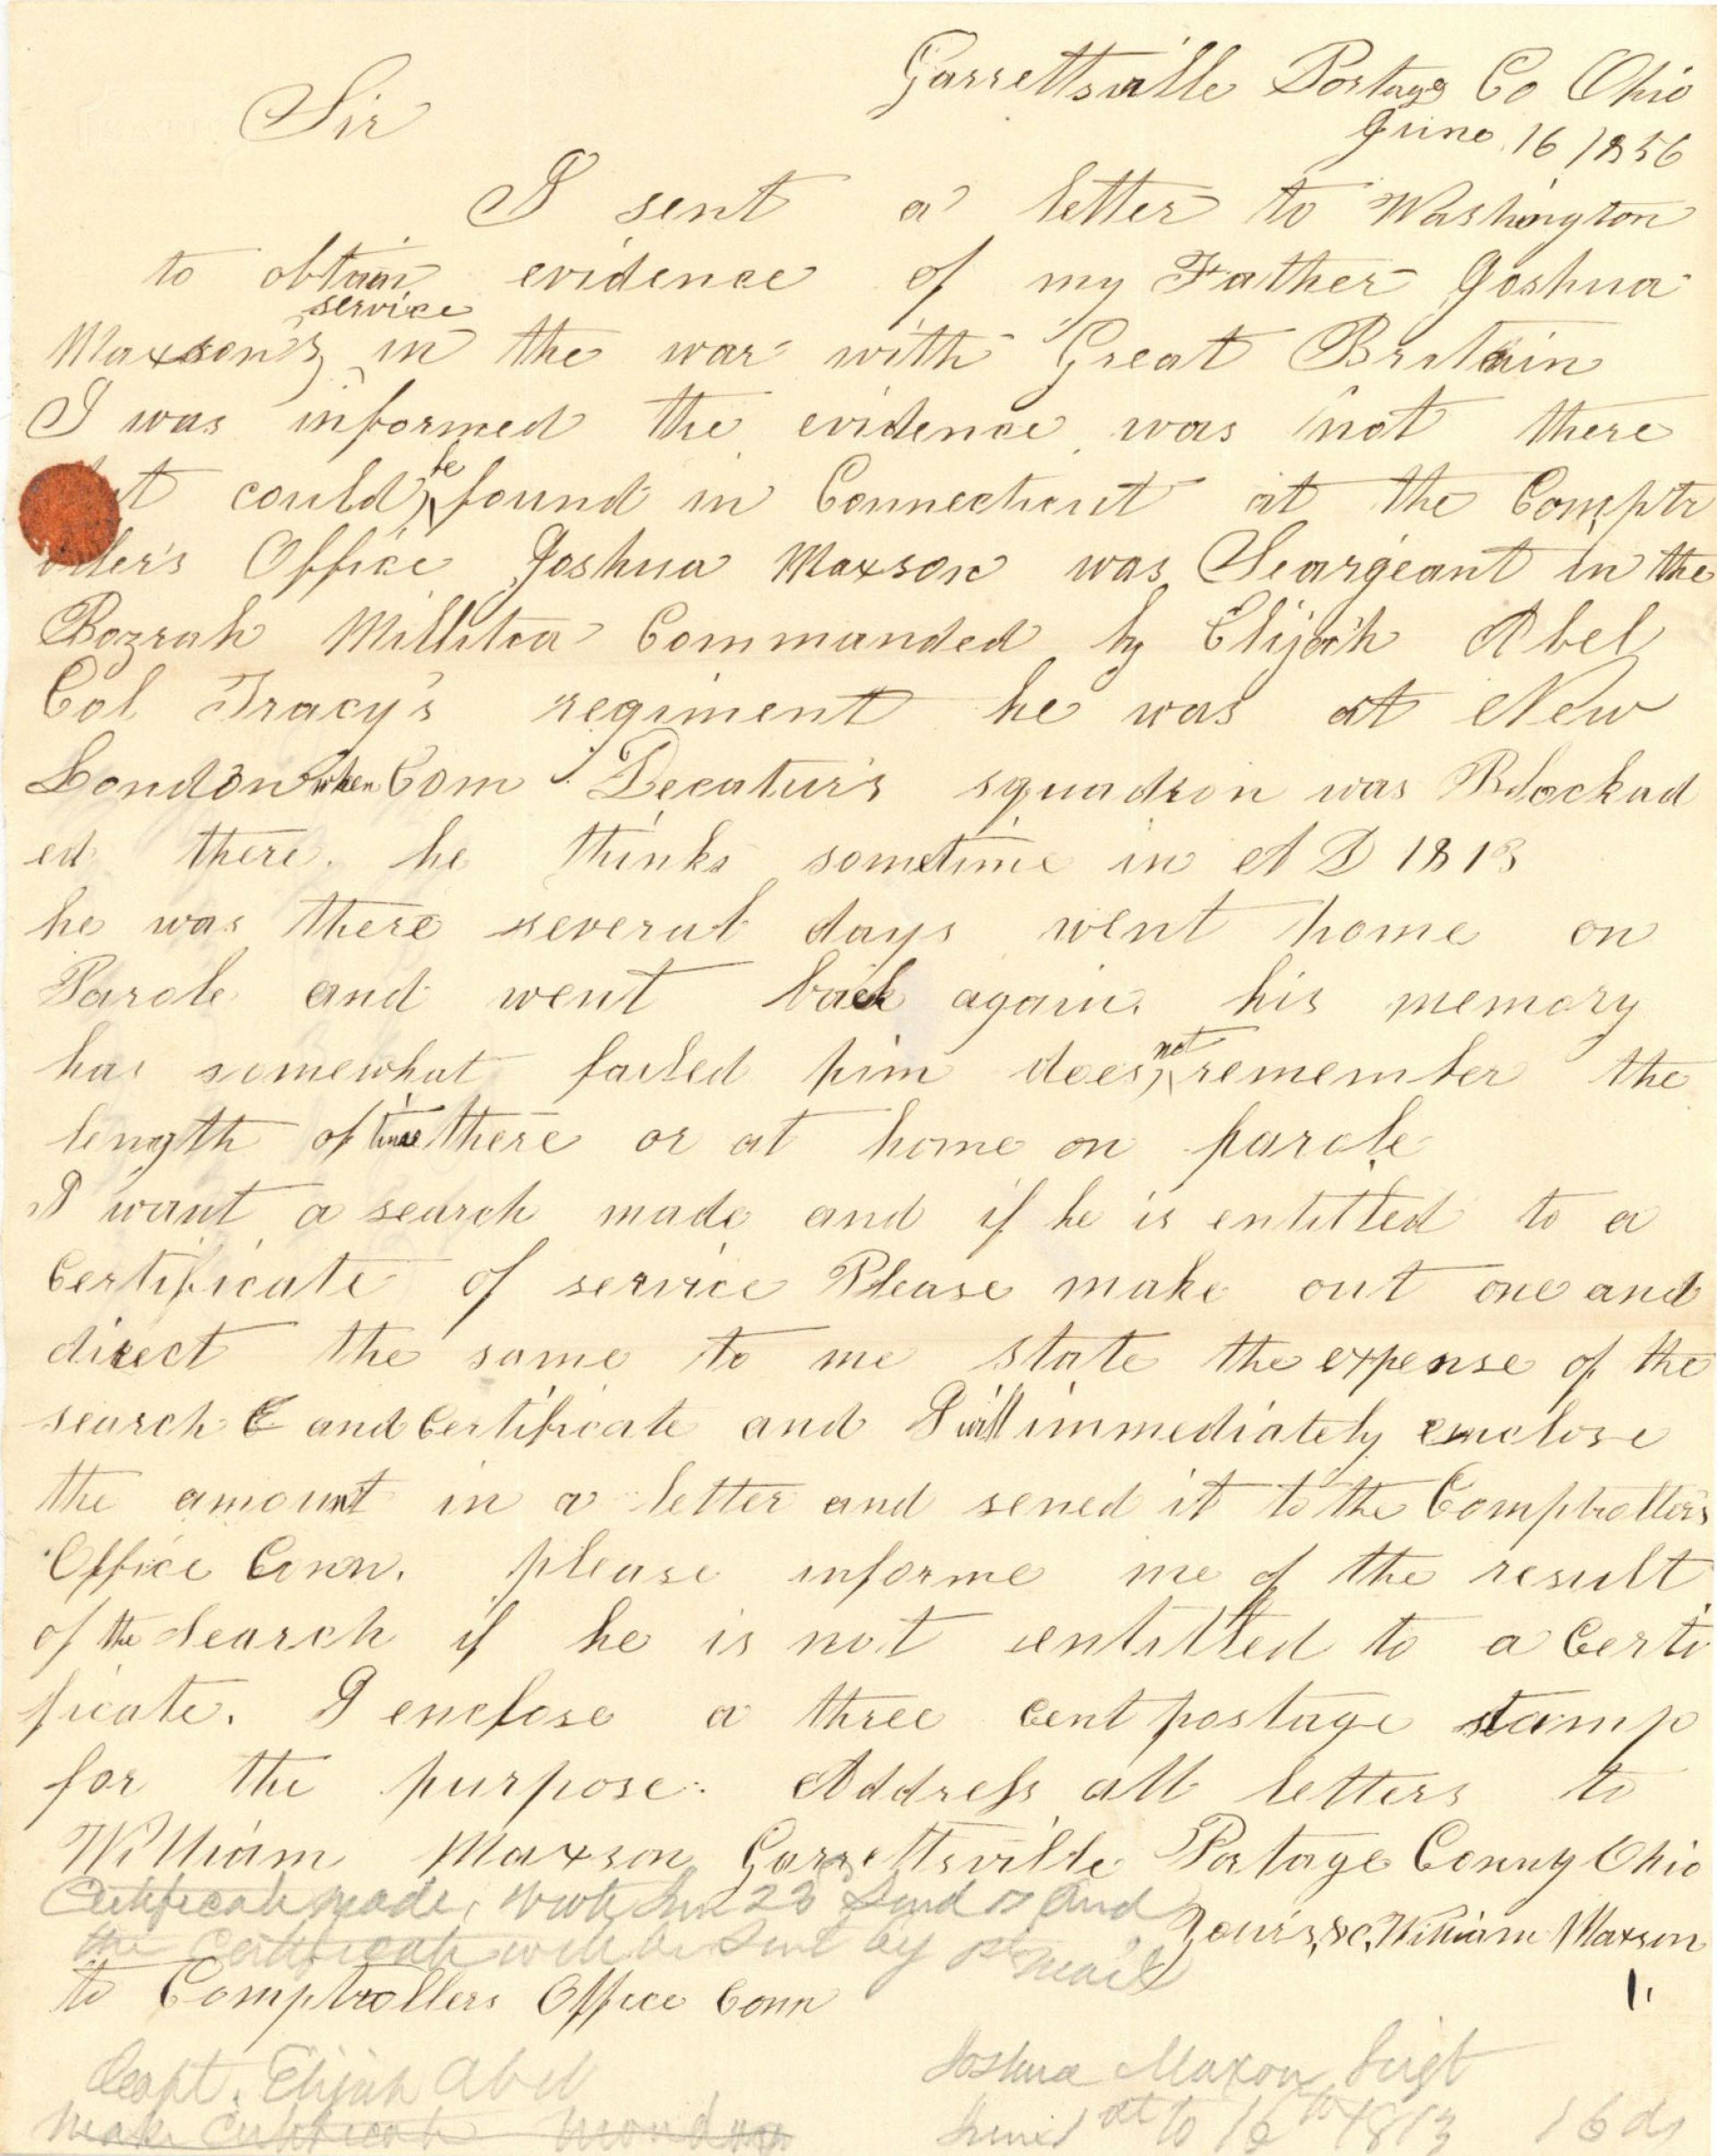 Garrettsville Portage Co Ohio
June 16 1856
Sir
I sent a letter to Washington
to obtain evidence of my Father Joshua
service
Maxson's in the war with Great Britain
I was informed the evidence was not there
but could be found in Connecticut at the Comptr
oller's Office Joshua Maxson was Seargeant in the
Bozrah Millitia Commanded by Elijah Abel
Col Tracy's regiment he was at New
London when Com Decatur's squadron was Blockad
ed there. he thinks sometime in A D 1813
he was there several days went home on
Parole and went back again. his memory
has somewhat failed him does not remember the
length of time there or at home on parole
I want a search made and if he is entitled to a
Certificate of service Please make out one and
direct the same to me state the expense of the
search and Certificate and I will immediately enclose
the amount in a letter and sened it to the Comptrollers
Office Conn. please informe me of the result
of the Search if he is not entitled to a Certi
ficate. I enclose a three cent postage stamp
for the purpose. Address all letters to
William Maxson Garrettsville Portage Couny Ohio
Certificate made, wrote 23 Send and
Yours &c. William Maxson
the Certificate will be sent by mail
to Comptrollers Office Conn
Capt. Elijah Abel
Joshua Maxson Sergt
make Certificate
1st to 16th 1813 16 ds